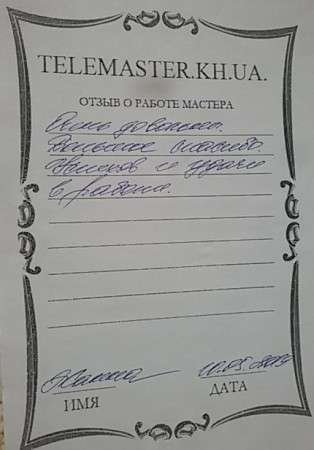 TELEMASTER.KH.UA.
ОТЗЫВ О РАБОТЕ МАСТЕРА
Очень довольна.
Большое спасибо.
Успехов и удачи
в работе.
Жанна
ИМЯ
ДАТА